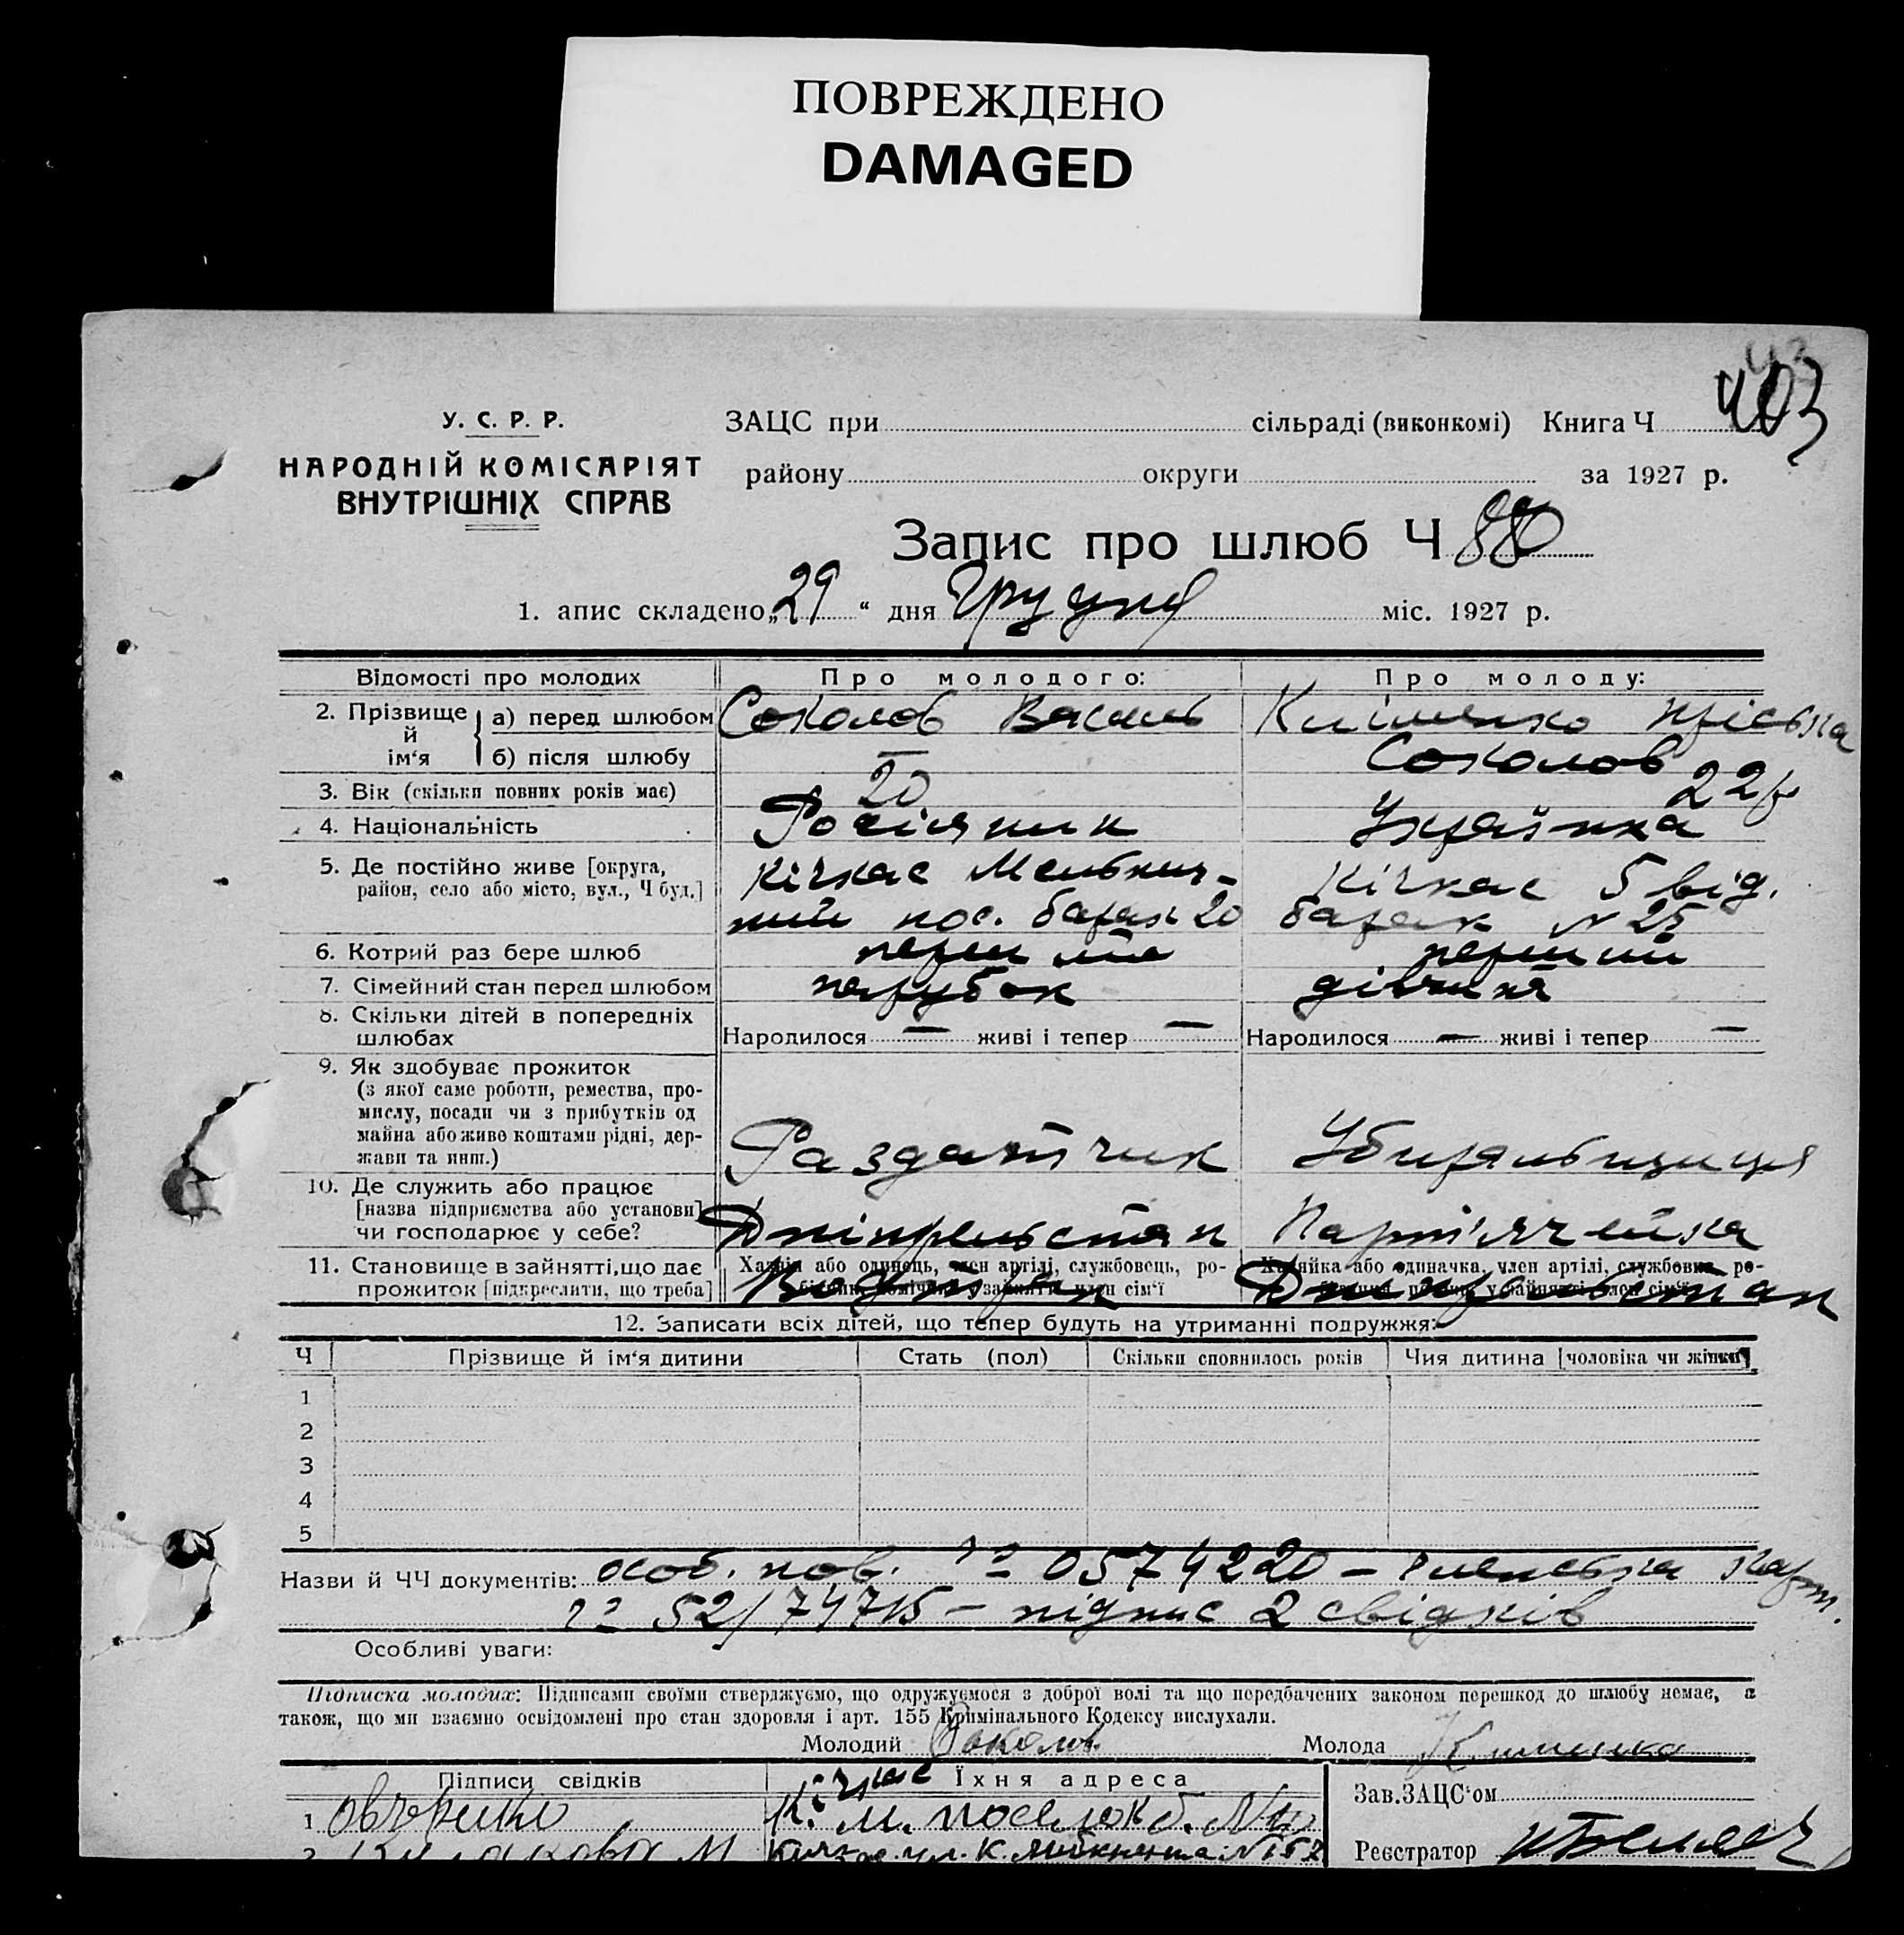 ПОВРЕЖДЕНО
DAMAGED
403
У. С. Р. Р.
НАРОДНІЙ КОМІСАРІЯТ
ВНУТРІШНІХ СПРАВ
ЗАЦС при сільраді (виконкомі) Книга Ч
району округи за 1927 р.
Запис про шлюб Ч 880
1. апис складено „29“ дня Грудня міс. 1927 р.
Відомості про молодих Про молодого: Про молоду:
2. Прізвище й ім‘я а) перед шлюбом Соколов Василь Кліменко
б) після шлюбу — Соколов
3. Вік (скільки повних років має) 20 22
4. Національність Росіянин Українка
5. Де постійно живе [округа, район, село або місто, вул., Ч буд.] Кічкас Мельнич-
ний пос. барак 20 Кічкас 5 від. барак N 25
6. Котрий раз бере шлюб перший перший
7. Сімейний стан перед шлюбом парубок дівчина
8. Скільки дітей в попередніх шлюбах Народилося — живі і тепер — Народилося — живі і тепер —
9. Як здобуває прожиток
(з якої саме роботи, ремества, про-
мислу, посади чи з прибутків од
майна або живе коштами рідні, дер-
жави та инш.) Раздатчик Убиральниця
10. Де служить або працює
[назва підприємства або установи]
чи господарює у себе? Дніпрельстан Парт'ячейка
11. Становище в зайнятті, що дає
прожиток [підкреслити, що треба] Хазяїн або одинець, член артілі, службовець, ро- Хазяйка або одиначка, член артілі, службовка, ро-
член сім‘ї Дніпрельстан
12. Записати всіх дітей, що тепер будуть на утриманні подружжя:
Ч Прізвище й ім‘я дитини Стать (пол) Скільки сповнилось років Чия дитина [чоловіка чи жінки]
1
2
3
4
5
Назви й ЧЧ документів: особ. пов. № 0574220 – членська карт.
№ 52/74715 – підпис 2 свідків
Особливі уваги:
Підписка молодих: Підписами своїми стверджуємо, що одружуємося з доброї волі та що передбачених законом перешкод до шлюбу немає, а
також, що ми взаємно освідомлені про стан здоровля і арт. 155 Кримінального Кодексу вислухали.
Молодий Соколов Молода Клименко
Підписи свідків Їхня адреса
Зав.ЗАЦС‘ом
1 Овчаренко Кічкас М. поселок б. N
2 М Кичкас ул. К. Либкнехта N 157
Реєстратор